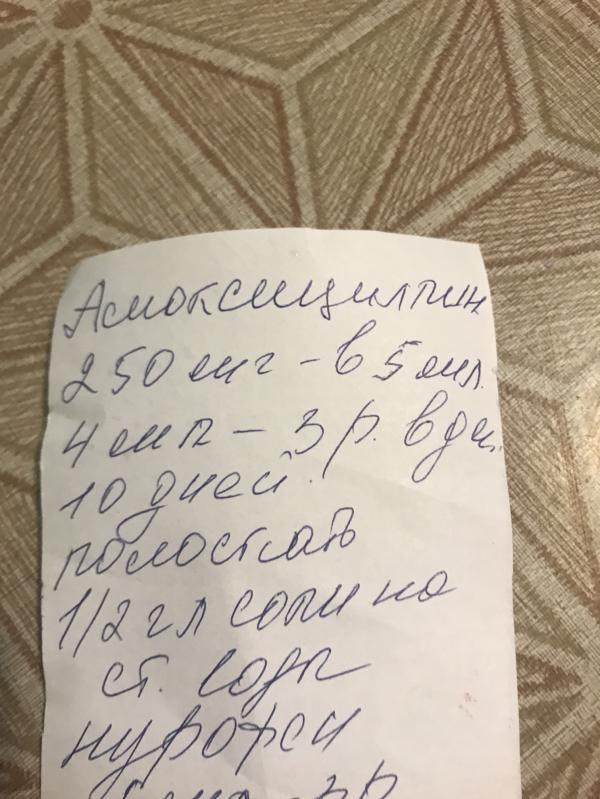 Амоксициллин
250 мг - в 5 мл.
4 мл - 3 р. в дн.
10 дней.
полоскать
1/2 ч л соли на
ст. воды
нурофен
мл - 3 р